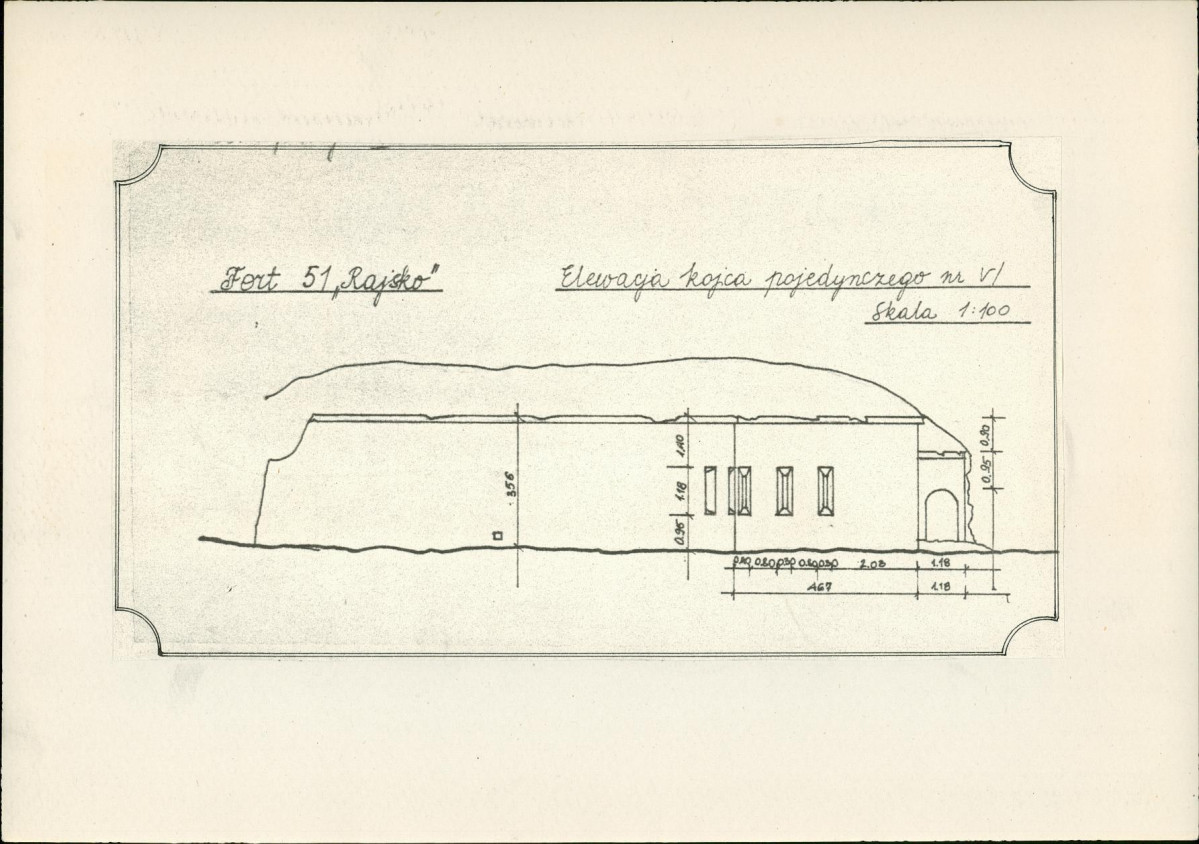 Fort 51 „Rajsko”
Elewacja kojca pojedynczego nr VI
Skala 1:100
3.56
1.40
1.18
0.95
0.90
0.95
0.30 0.80 0.30 0.80 0.30 2.03 1.18
4.67 1.18